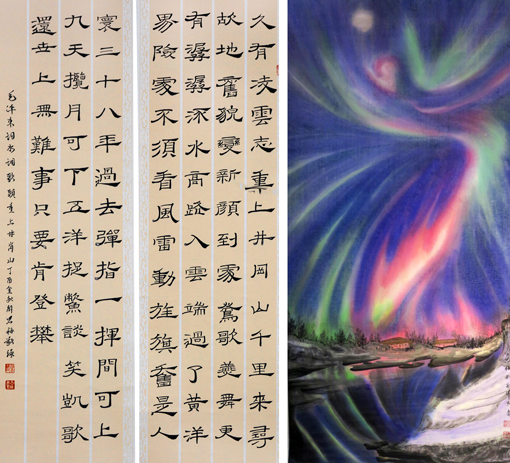 久有凌雲志重上井岡山千里來尋
故地舊貌變新顏到處鶯歌燕舞更
有潺潺流水高路入雲端過了黃洋
界險處不須看風雷動旌旗奮是人
寰三十八年過去彈指一揮間可上
九天攬月可下五洋捉鱉談笑凱歌
還世上無難事只要肯登攀
毛泽東詞水調歌頭重上井岡山丁酉